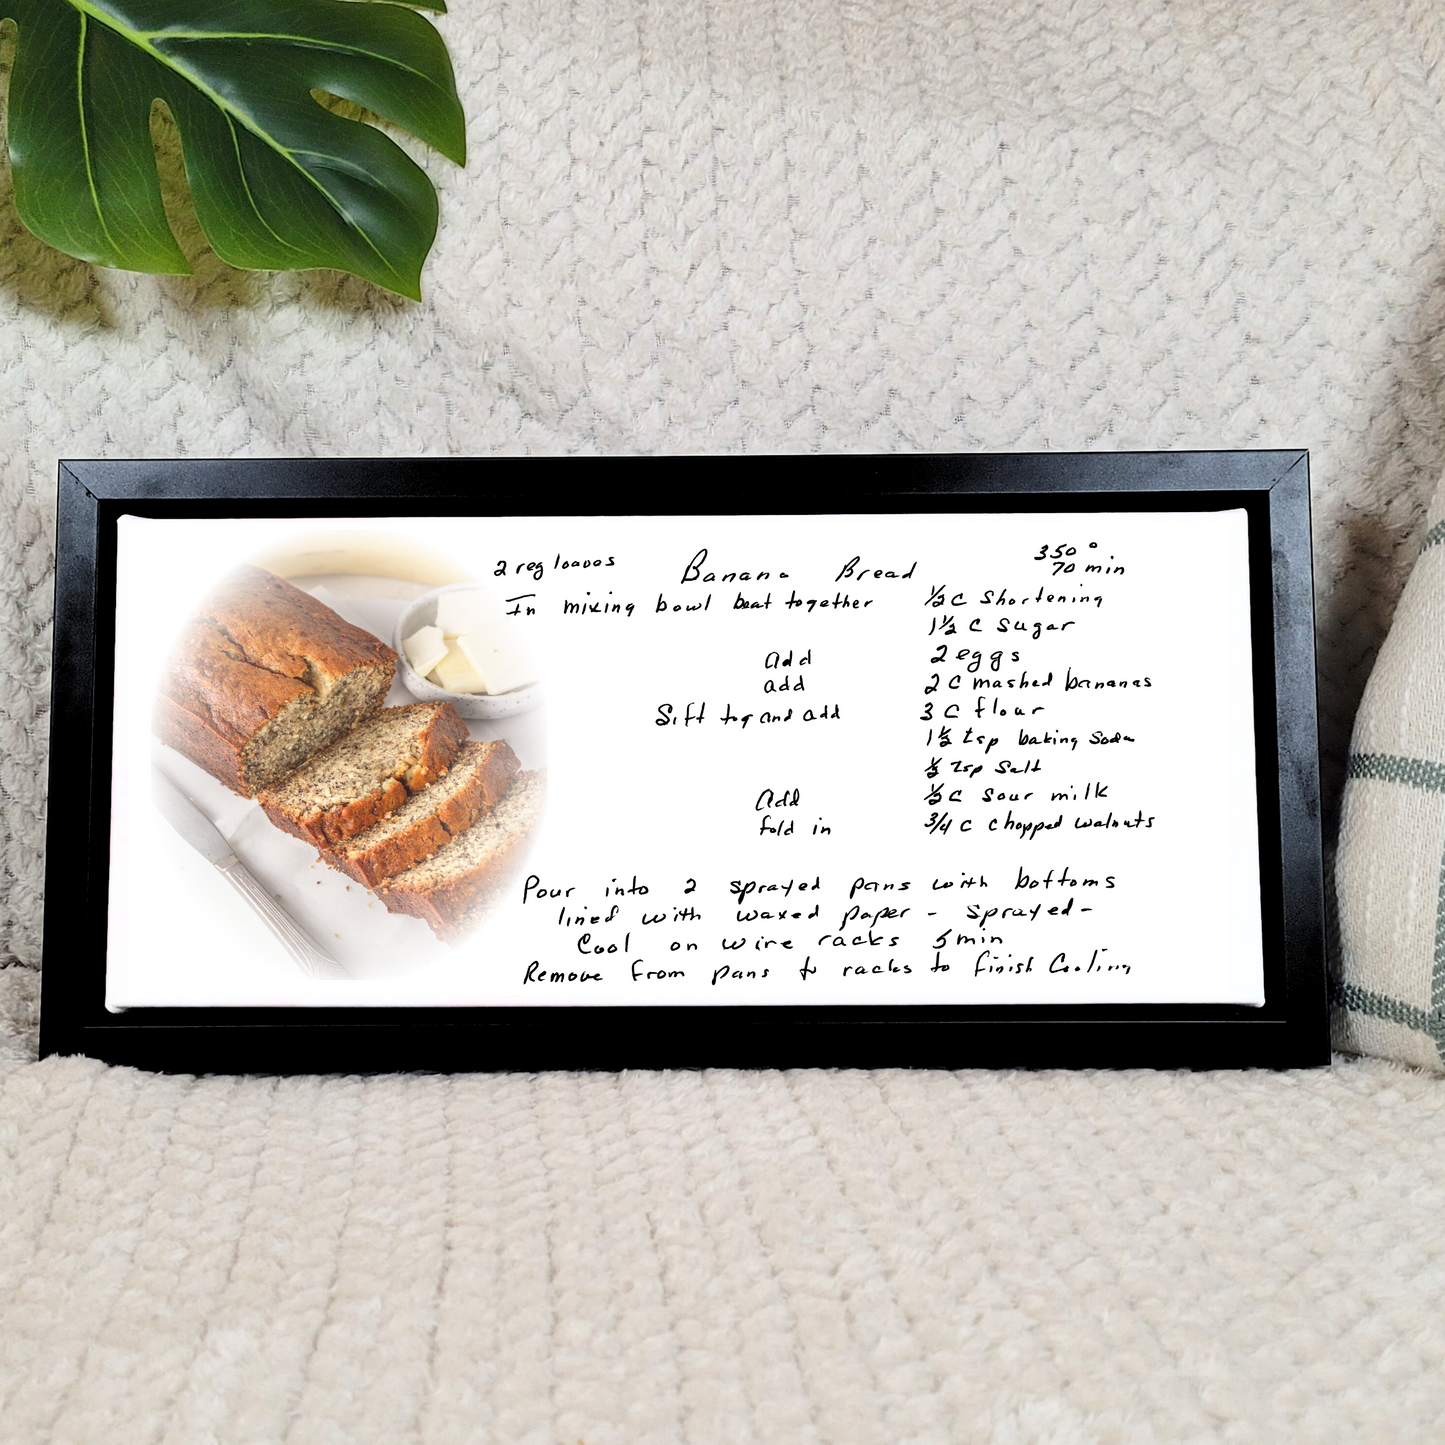 2 reg loaves Banana Bread 350°
70 min
In mixing bowl beat together ½ C Shortening
1½ C Sugar
Add 2 eggs
add 2 C mashed bananas
Sift tog and add 3 C flour
1½ tsp baking Soda
½ tsp Salt
Add ½ C Sour milk
fold in 3/4 C chopped walnuts
Pour into 2 sprayed pans with bottoms
lined with waxed paper - sprayed-
Cool on wire racks 5 min
Remove from pans to racks to finish Cooling